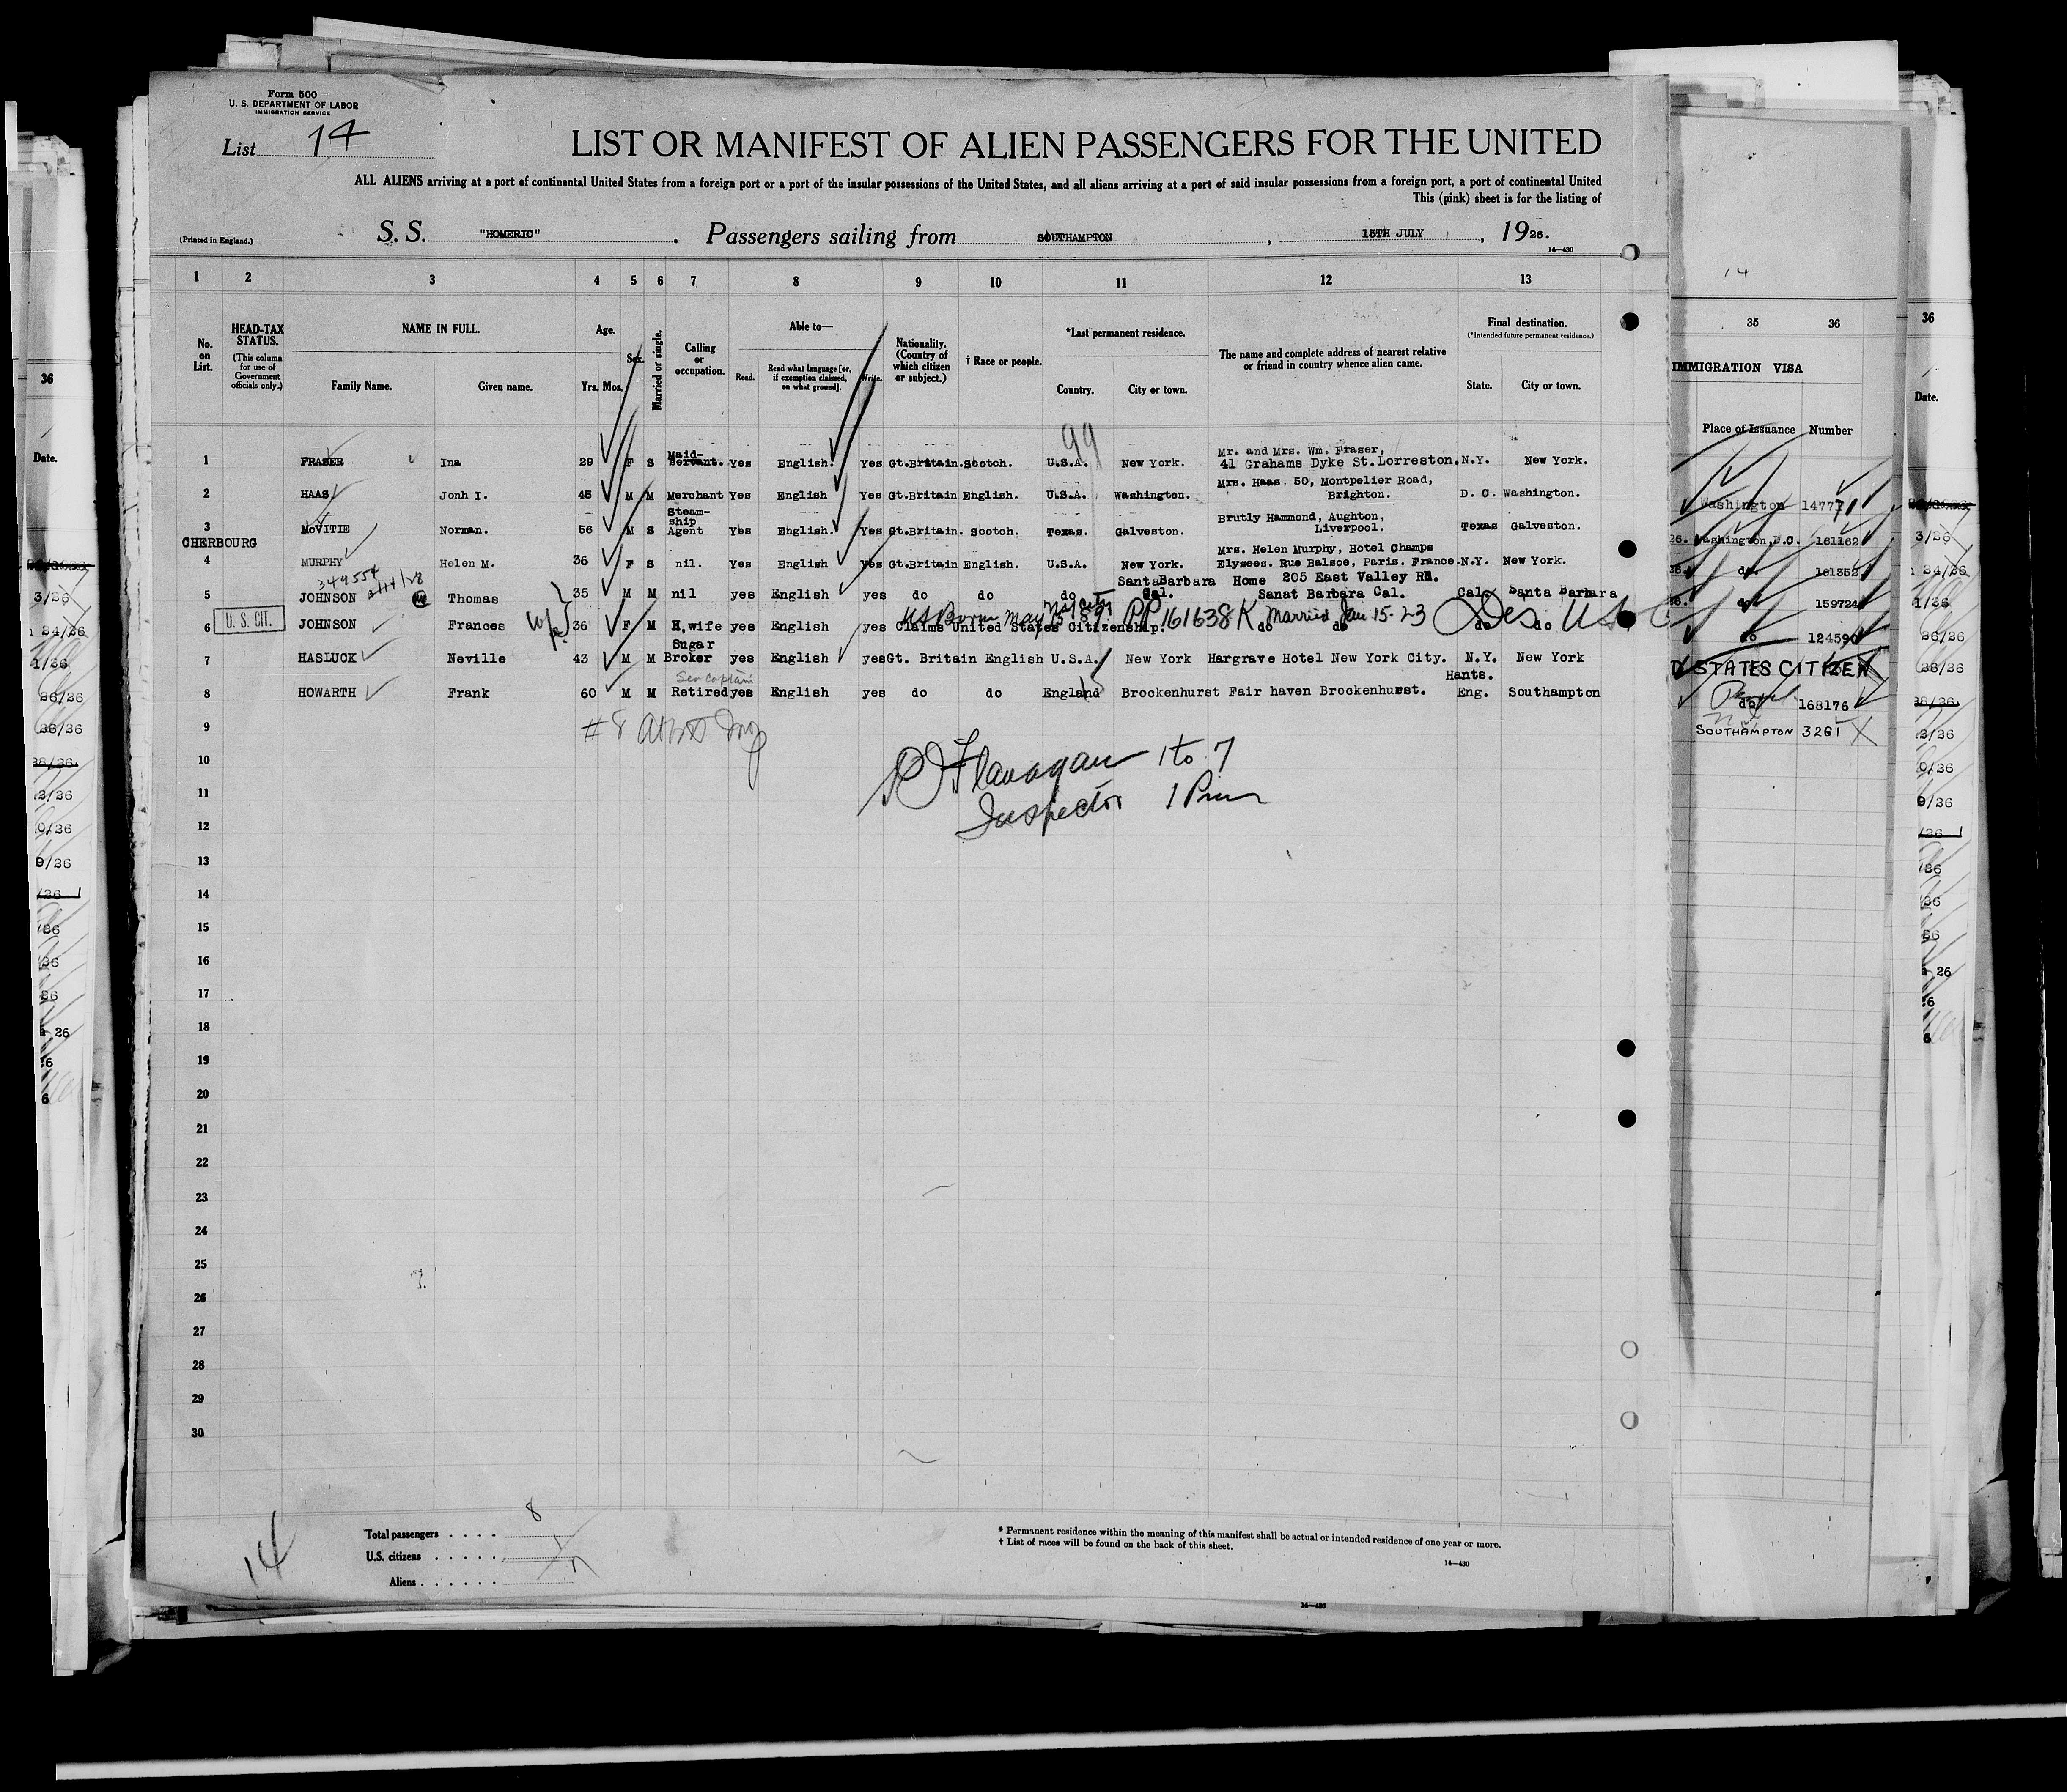 Form 500
U. S. DEPARTMENT OF LABOR
IMMIGRATION SERVICE
List 14
LIST OR MANIFEST OF ALIEN PASSENGERS FOR THE UNITED
ALL ALIENS arriving at a port of continental United States from a foreign port or a port of the insular possessions of the United States, and all aliens arriving at a port of said insular possessions from a foreign port, a port of continental United
This (pink) sheet is for the listing of
(Printed in England.) S. S. "HOMERIC" . Passengers sailing from SOUTHAMPTON , 15TH JULY , 1926.
14—430
1 2 3 4 5 6 7 8 9 10 11 12 13
No. on List.
HEAD-TAX STATUS.
(This column for use of Government officials only.)
NAME IN FULL.
Family Name. Given name.
Age.
Yrs. Mos.
Sex.
Married or single.
Calling or occupation.
Able to—
Read. Read what language [or, if exemption claimed, on what ground]. Write.
Nationality. (Country of which citizen or subject.)
† Race or people.
*Last permanent residence.
Country. City or town.
The name and complete address of nearest relative or friend in country whence alien came.
Final destination.
(*Intended future permanent residence.)
State. City or town.
99
Maid- Mr. and Mrs. Wm. Fraser,
1 FRASER Ina 29 F S Servant. Yes English. Yes Gt.Britain. Scotch. U.S.A. New York. 41 Grahams Dyke St. Lorreston. N.Y. New York.
Mrs. Haas 50, Montpelier Road,
2 HAAS Jonh I. 45 M M Merchant Yes English Yes Gt.Britain English. U.S.A. Washington. Brighton. D. C. Washington.
Steam-
ship Brutly Hammond, Aughton,
3 McVITIE Norman. 56 M S Agent Yes English. Yes Gt.Britain. Scotch. Texas. Galveston. Liverpool. Texas Galveston.
CHERBOURG
Mrs. Helen Murphy, Hotel Champs
4 MURPHY Helen M. 36 F S nil. Yes English Yes Gt.Britain English. U.S.A. New York. Elysees. Rue Balsoe, Paris. France. N.Y. New York.
349554
SantaBarbara Home 205 East Valley Rd.
5 JOHNSON Thomas 35 M M nil yes English yes do do do Cal. Sanat Barbara Cal. Cal. Santa Barbara
U. S. CIT.
US Born May PP.161638K Married Jan 15-23
6 JOHNSON Frances 36 F M H.wife yes English yes Claims United States Citizenship. do do do do
Sugar
7 HASLUCK Neville 43 M M Broker yes English yes Gt. Britain English U.S.A. New York Hargrave Hotel New York City. N.Y. New York
Sea Captain Hants.
8 HOWARTH Frank 60 M M Retired yes English yes do do England Brockenhurst Fair haven Brockenhurst. Eng. Southampton
9
10
Flanagan 1 to 7
11
Inspector
12
13
14
15
16
17
18
19
20
21
22
23
24
25
26
27
28
29
30
14
Total passengers . . . . 8
U.S. citizens . . . . . . 1
Aliens . . . . . . 7
* Permanent residence within the meaning of this manifest shall be actual or intended residence of one year or more.
† List of races will be found on the back of this sheet.
14—430
14—430
14
35 36
IMMIGRATION VISA
Place of Issuance Number
Washington 14777
Washington,D.C. 161162
do 161352
do 159724
do 124590
D STATES CITIZEN
do 168176
SOUTHAMPTON 3261
36
Date.
36
Date.